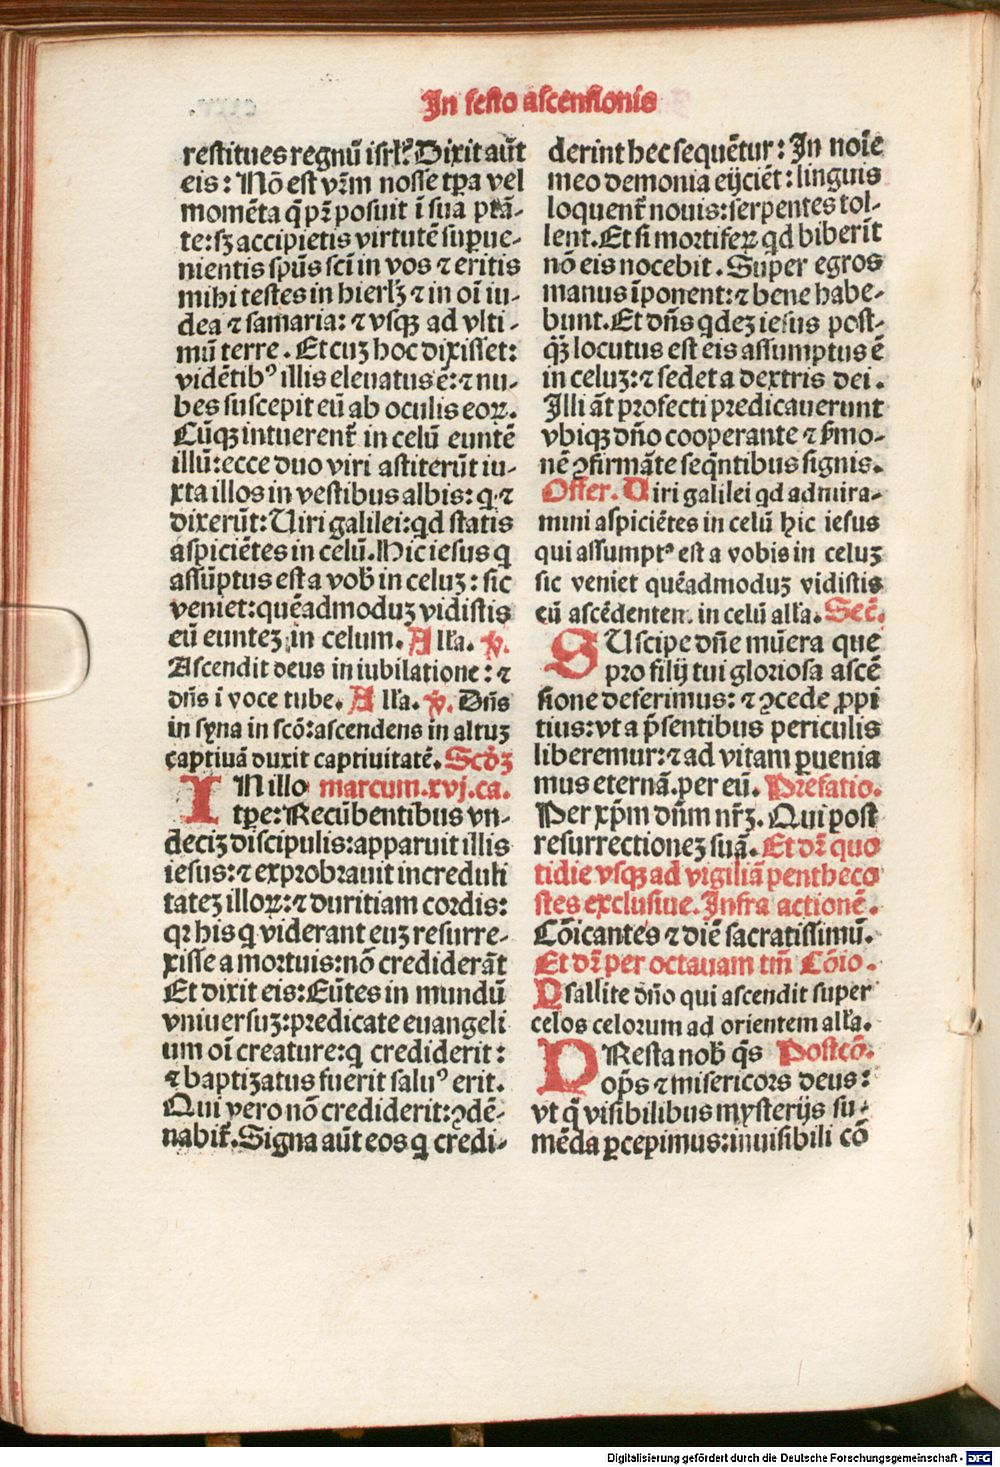 In festo ascensionis
restitues regnū isrl̄? Dixit aūt
eis: Nō est vr̄m nosse tp̄a vel
momēta q̄ pr̄ posuit ī sua ptā-
te: sꝫ accipietis virtutē superue-
nientis spūs sc̄i in vos ⁊ eritis
mihi testes in hierlꝫ ⁊ in oī iu-
dea ⁊ samaria: ⁊ vsqꝫ ad vlti-
mū terre. Et cuꝫ hoc dixisset:
vidētibꝰ illis eleuatus ē: ⁊ nu-
bes suscepit eū ab oculis eoꝝ.
Cūqꝫ intuerent̄ in celū euntē
illū: ecce duo viri astiterūt iu-
xta illos in vestibus albis: q ⁊
dixerūt: Uiri galilei: qd statis
aspiciētes in celū. Hic iesus q
assūptus est a vob̄ in celuꝫ: sic
veniet: quēadmoduꝫ vidistis
eū eunteꝫ in celum. Alla. ꝟ.
Ascendit deus in iubilatione: ⁊
dn̄s ī voce tube. Alla. ꝟ. Dn̄s
in syna in scō: ascendens in altuꝫ
captiuā duxit captiuitatē. Scd̄ꝫ
IN illo marcum. xvj. ca.
tꝑe: Recūbentibus vn-
deciꝫ discipulis: apparuit illis
iesus: ⁊ exprobrauit increduli
tateꝫ illoꝝ: ⁊ duritiam cordis:
qꝛ his q viderant euꝫ resurre-
xisse a mortuis: nō crediderāt
Et dixit eis: Eūtes in mundū
vniuersuꝫ: predicate euangeli
um oī creature: q crediderit:
⁊ baptizatus fuerit saluꝰ erit.
Qui vero nō crediderit: ꝯdē-
nabit̄. Signa aūt eos q credi-
derint hec sequētur: In noīe
meo demonia eijciēt: linguis
loquent̄ nouis: serpentes tol-
lent. Et si mortiferꝝ qd biberīt
nō eis nocebit. Super egros
manus īponent: ⁊ bene habe-
bunt. Et dn̄s qdeꝫ iesus post-
q̄ꝫ locutus est eis assumptus ē
in celuꝫ: ⁊ sedet a dextris dei.
Illi āt profecti predicauerunt
vbiqꝫ dn̄o cooperante ⁊ ẜmo-
nē ꝯfirmāte seqn̄tibus signis.
Offer. Viri galilei qd admira-
mini aspiciētes in celū hic iesus
qui assumptꝰ est a vobis in celuꝫ
sic veniet quēadmoduꝫ vidistis
eū ascēdentem in celū alla. Secē.
SUscipe dn̄e mūera que
pro filij tui gloriosa ascē
sione deferimus: ⁊ ꝯcede ꝓpi
tius: vt a p̄sentibus periculis
liberemur: ⁊ ad vitam ꝑuenia
mus eternā. per eū. Prefatio.
Per xp̄m dn̄m nr̄ꝫ. Qui post
resurrectioneꝫ suā. Et dr̄ quo
tidie vsqꝫ ad vigiliā pentheco
stes exclusiue. Infra actionē.
Cōicantes ⁊ diē sacratissimū.
Et dr̄ per octauam tm̄ Cōio.
Psallite dn̄o qui ascendit super
celos celorum ad orientem alla.
PResta nob̄ q̄s Postcō.
opꝭ ⁊ misericors deus:
vt q̄ visibilibus mysterijs su-
mēda ꝑcepimus: inuisibili cō
Digitalisierung gefördert durch die Deutsche Forschungsgemeinschaft - DFG